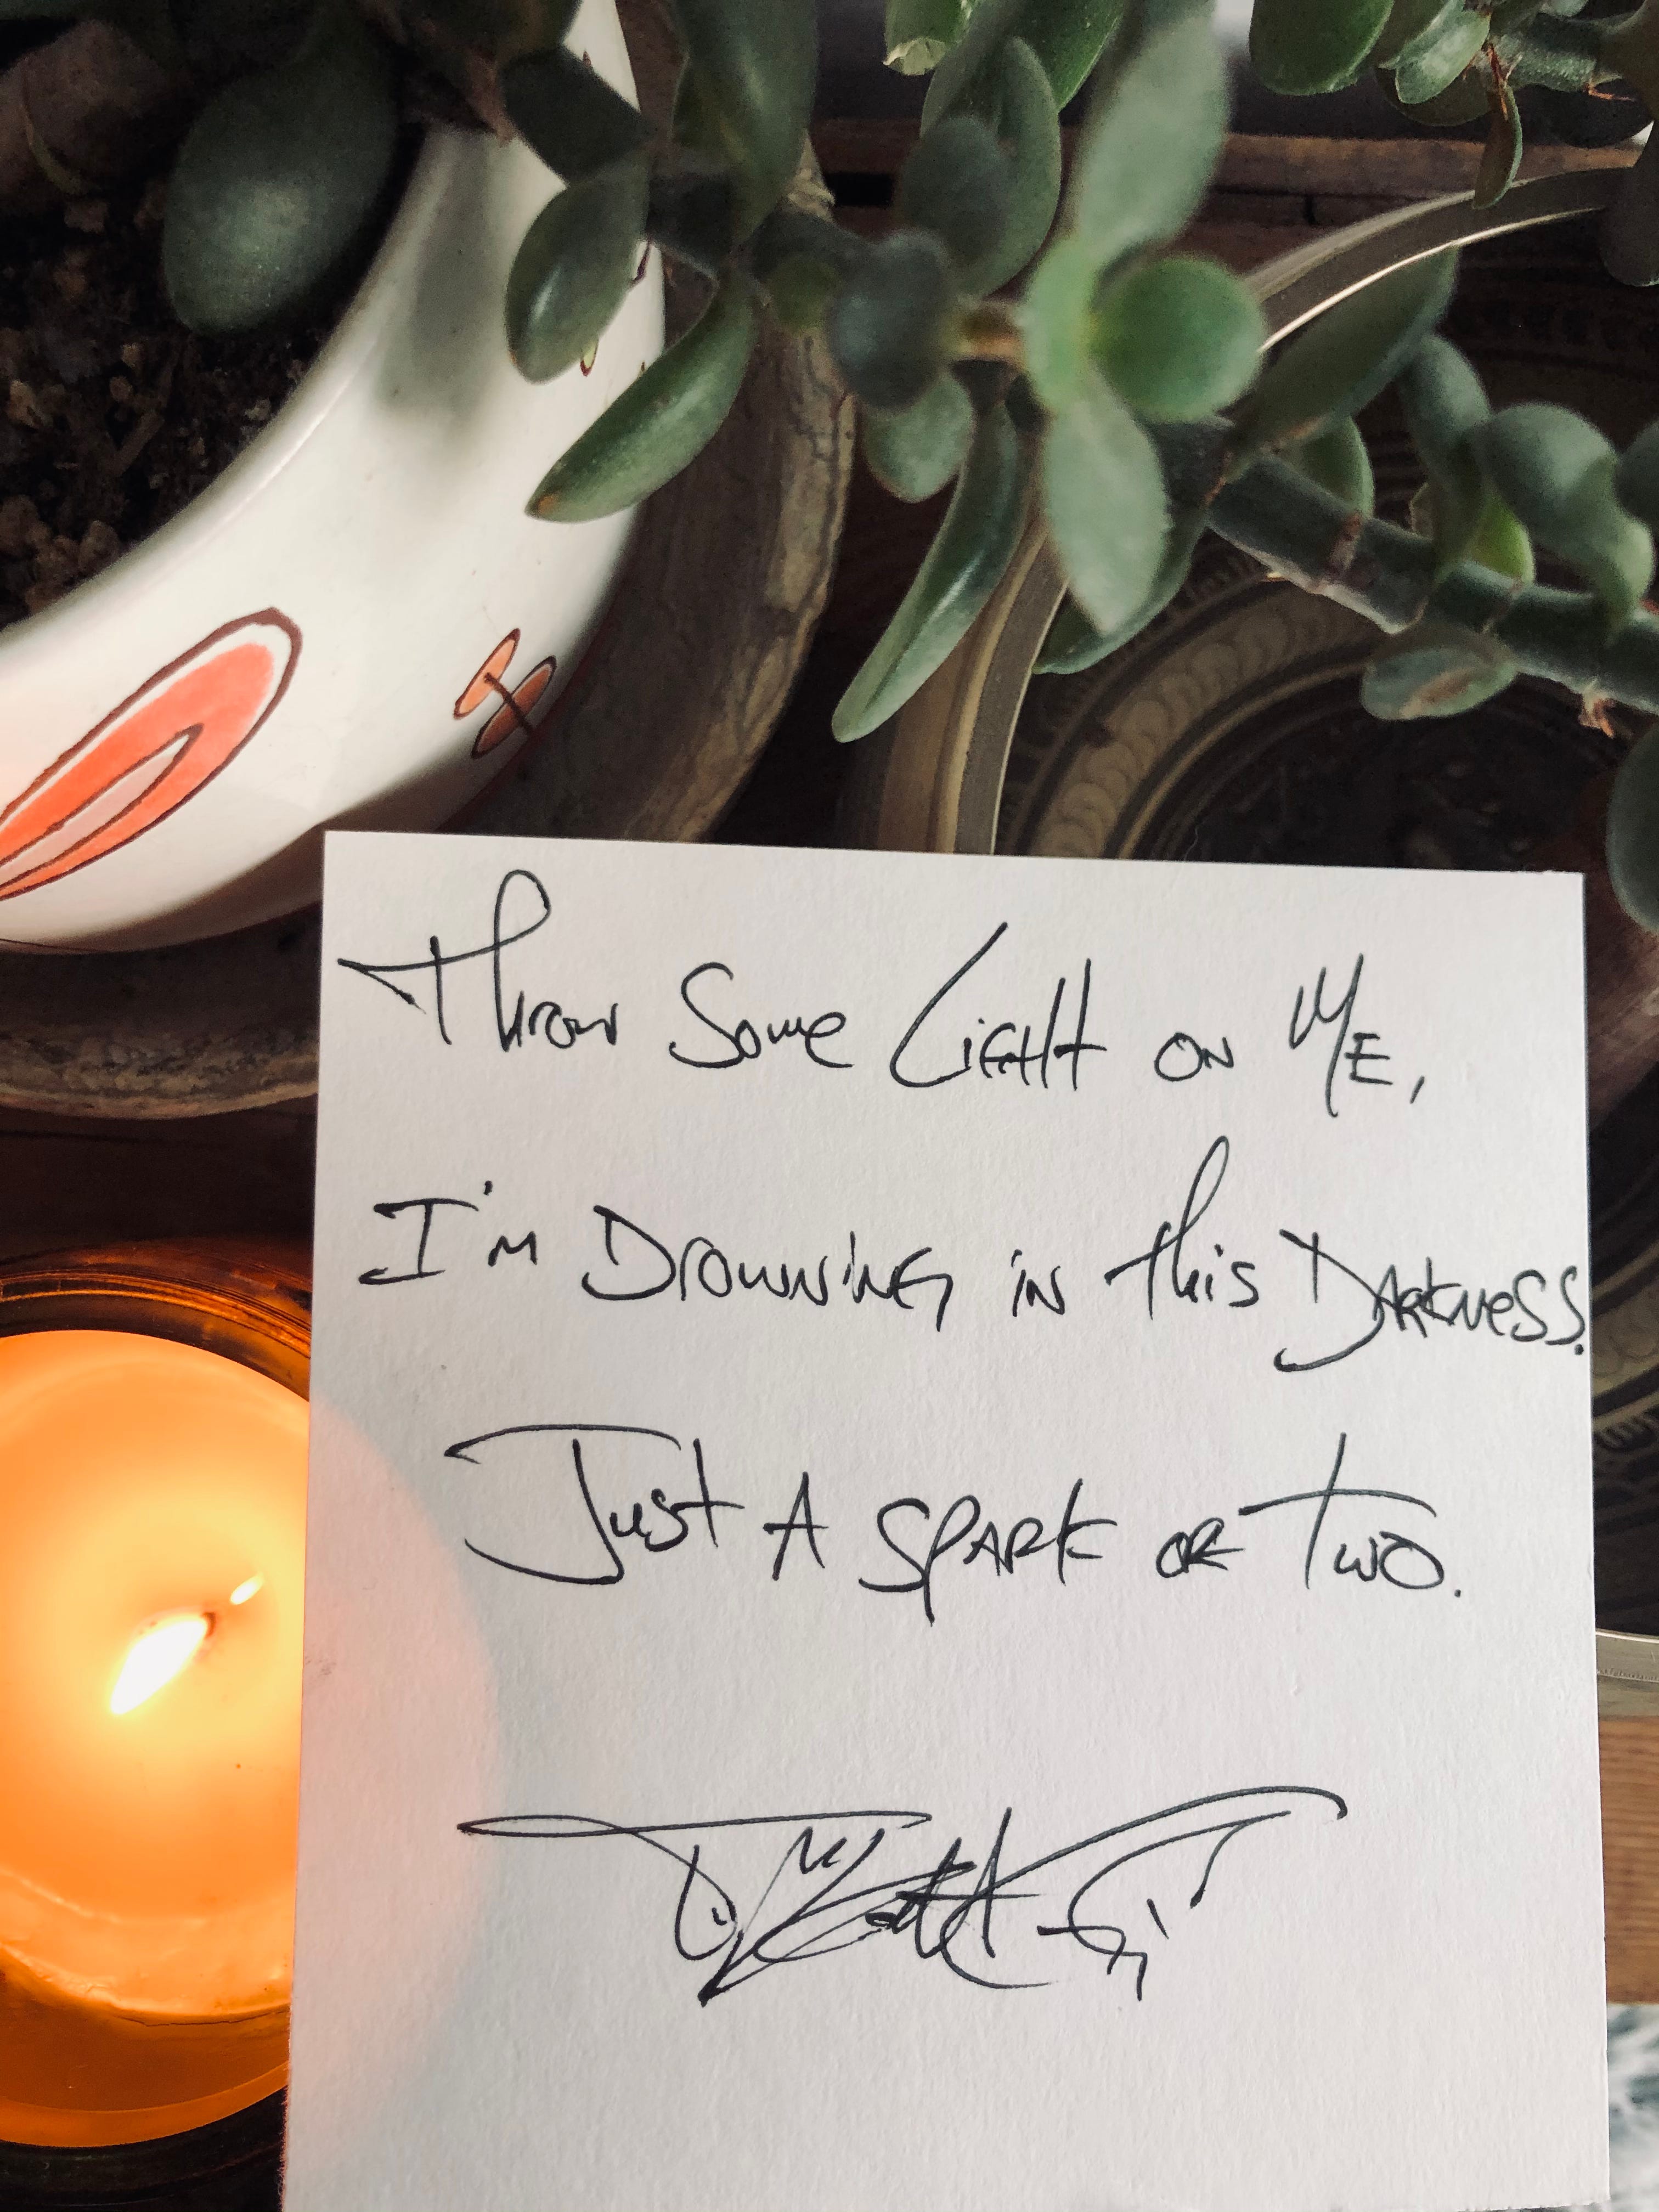 Throw Some Light on Me,
I'm Drowning in this Darkness.
Just A Spark or Two.